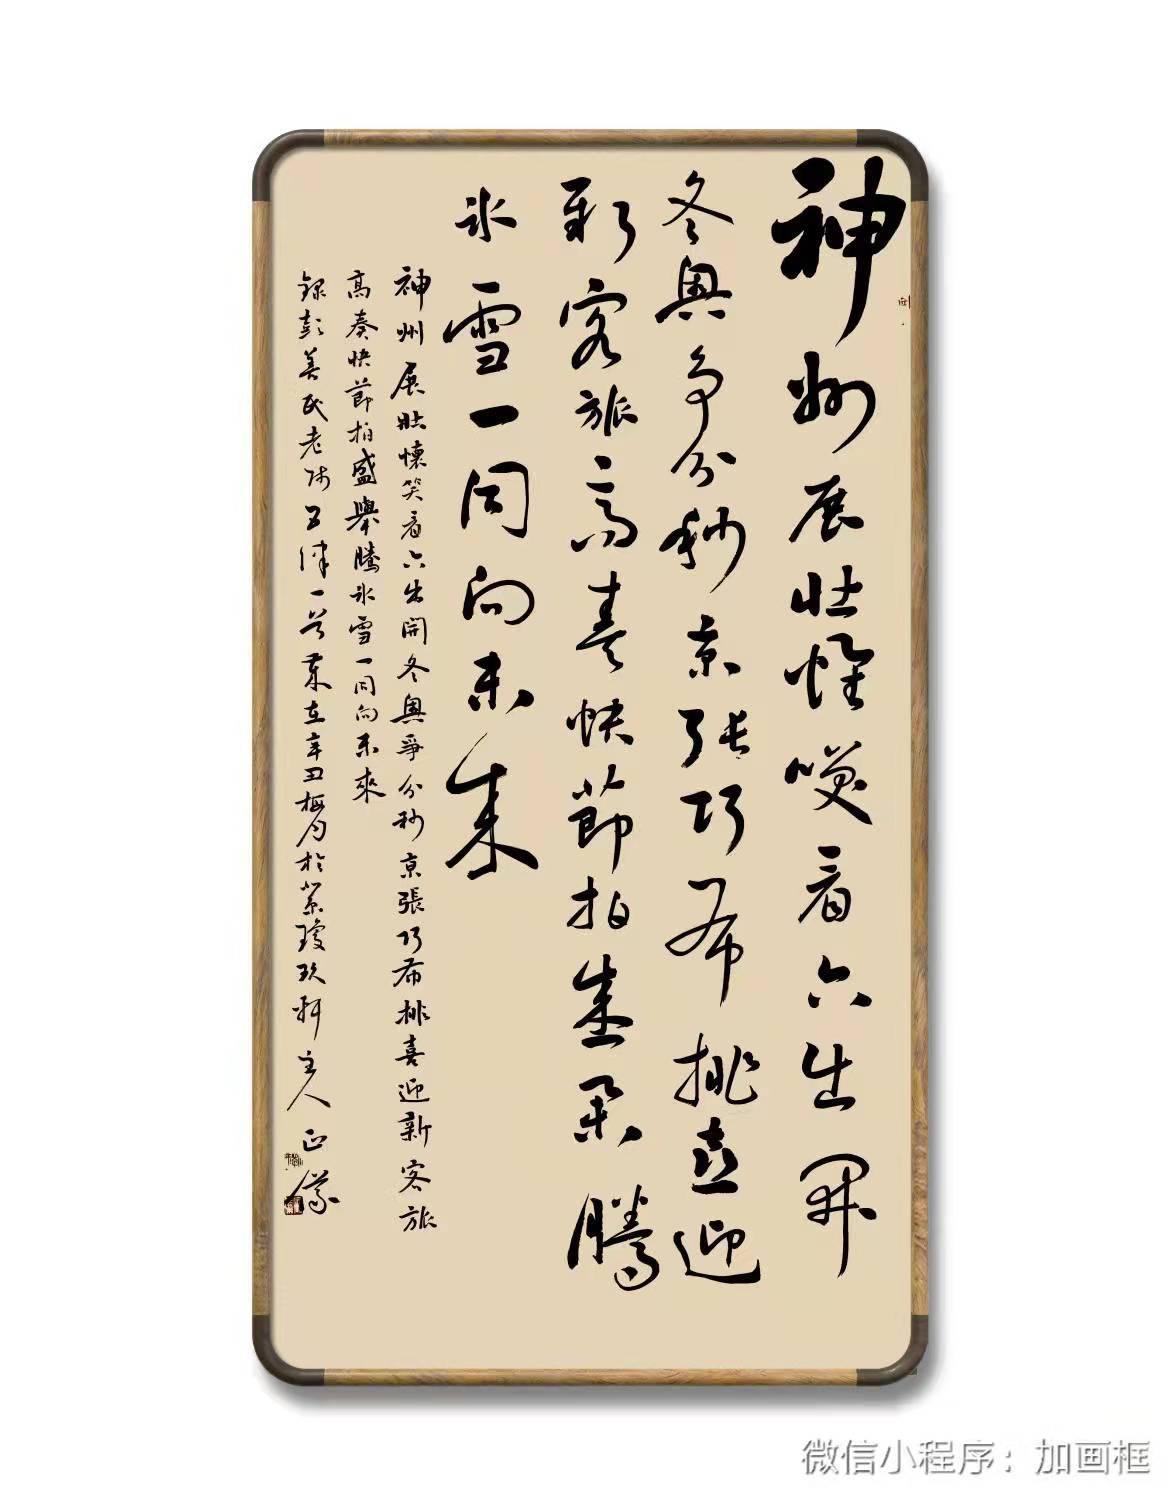 神州展壯懷咲看六出开
冬奥争分秒京张巧布排喜迎
新客旅高奏快節拍盛举騰
冰雪一同向未来
神州展壯懷笑看六出開冬奥爭分秒京張巧布排喜迎新客旅
高奏快節拍盛舉騰冰雪一同向未來
録彭善民老师五律一首歲在辛丑梅月於紫瓊玖軒主人正
微信小程序：加画框